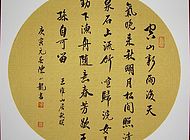 空山新雨後天
氣晚来秋明月松间照清
泉石上流竹喧歸浣女蓮
動下漁舟隨意春芳歇王
孫自可留
王维山居秋暝
庚寅